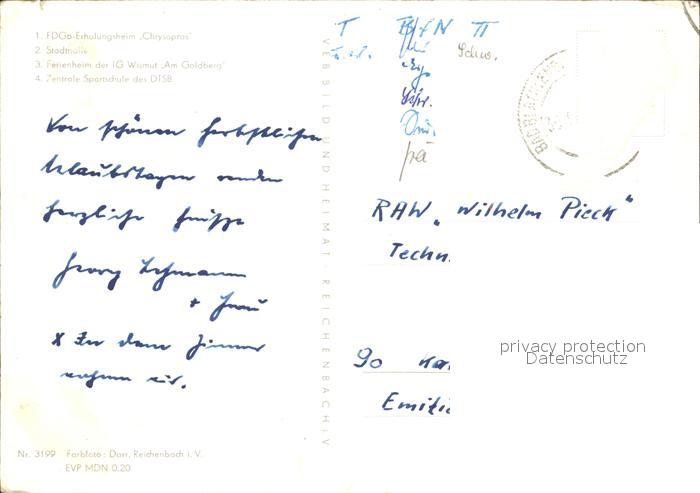 1. FDGB-Erholungsheim „Chrysopras"
2. Stadthalle
3. Ferienheim der IG Wismut „Am Goldberg"
4. Zentrale Sportschule des DTSB
Von schönen herbstlichen
Urlaubstagen senden
herzliche Grüße
Georg Lehmann
+ Frau
X In dem Zimmer
wohnen wir.
Nr. 3199 Farbfoto: Darr, Reichenbach i. V.
EVP MDN 0.20
VEB BILD UND HEIMAT · REICHENBACH i V
T BfN II
Schw.
pä
RAW „Wilhelm Pieck"
Techn.
90
privacy protection
Datenschutz